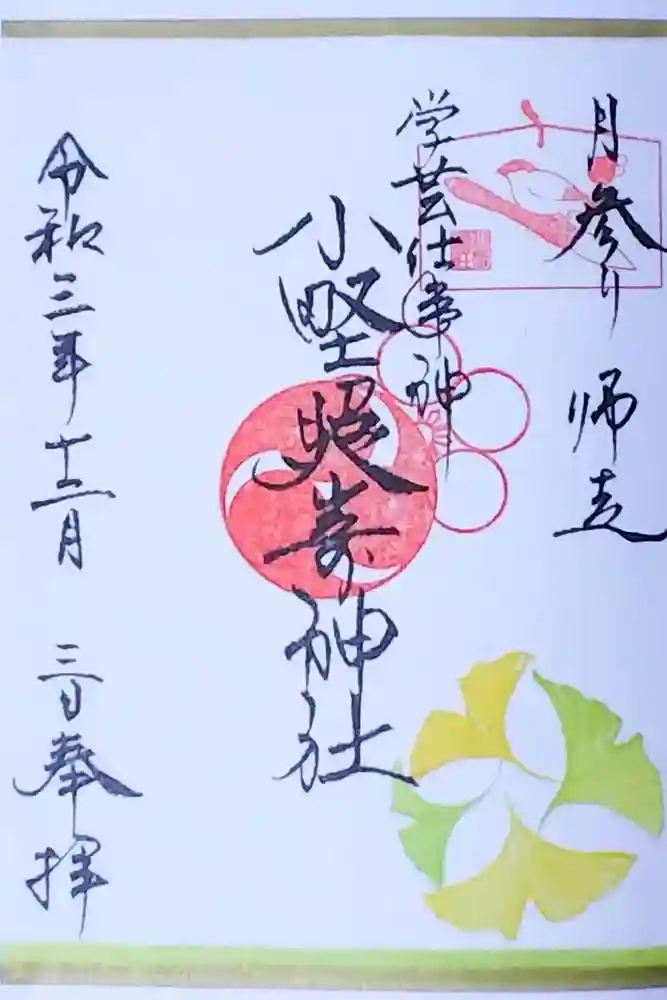 月参り 师走
学芸仕事神
小野照崎神社
令和三年十二月 三日奉拝